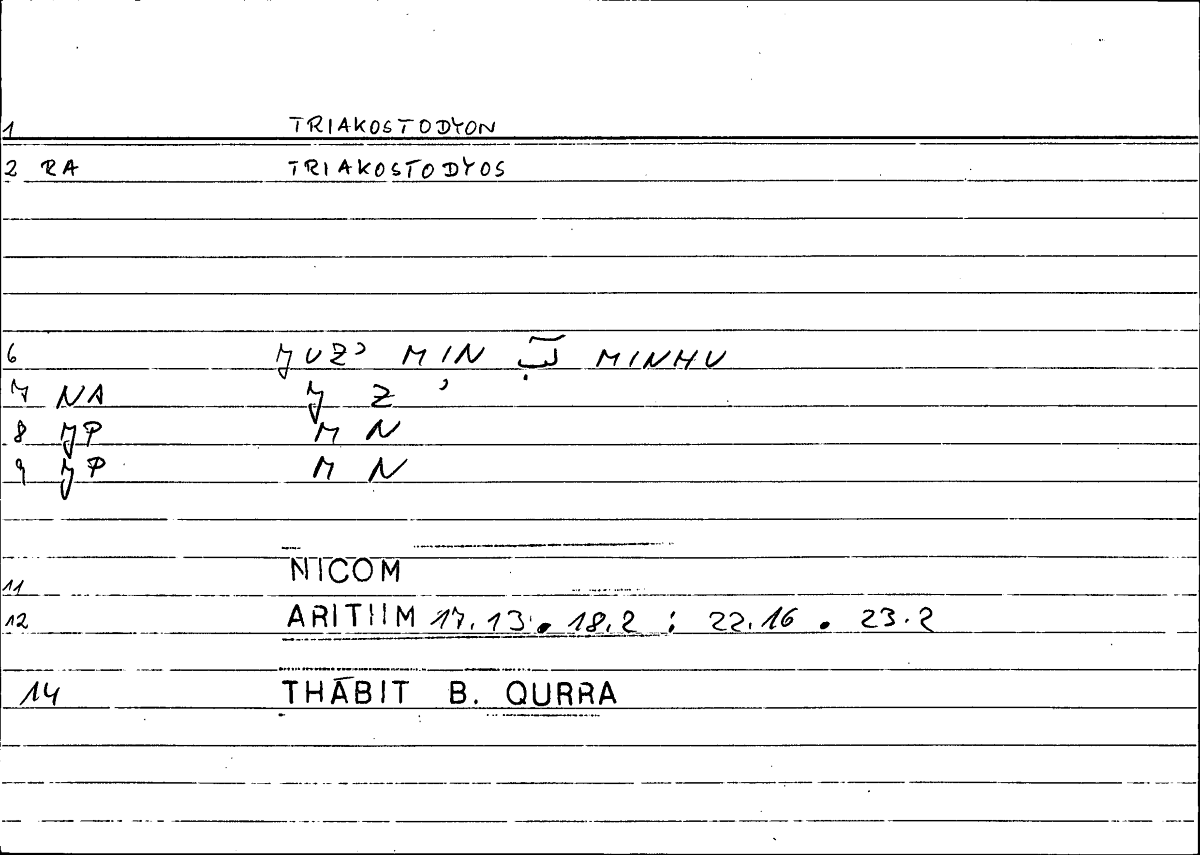 1 TRIAKOSTODYON
2 RA TRIAKOSTODYOS
6 JUZʾ MIN لب MINHU
7 NA J Z ʾ
8 JP M N
9 JP M N
NICOM
11
12 ARITHM 17.13 . 18.2 ; 22.16 . 23.2
14 THĀBIT B. QURRA